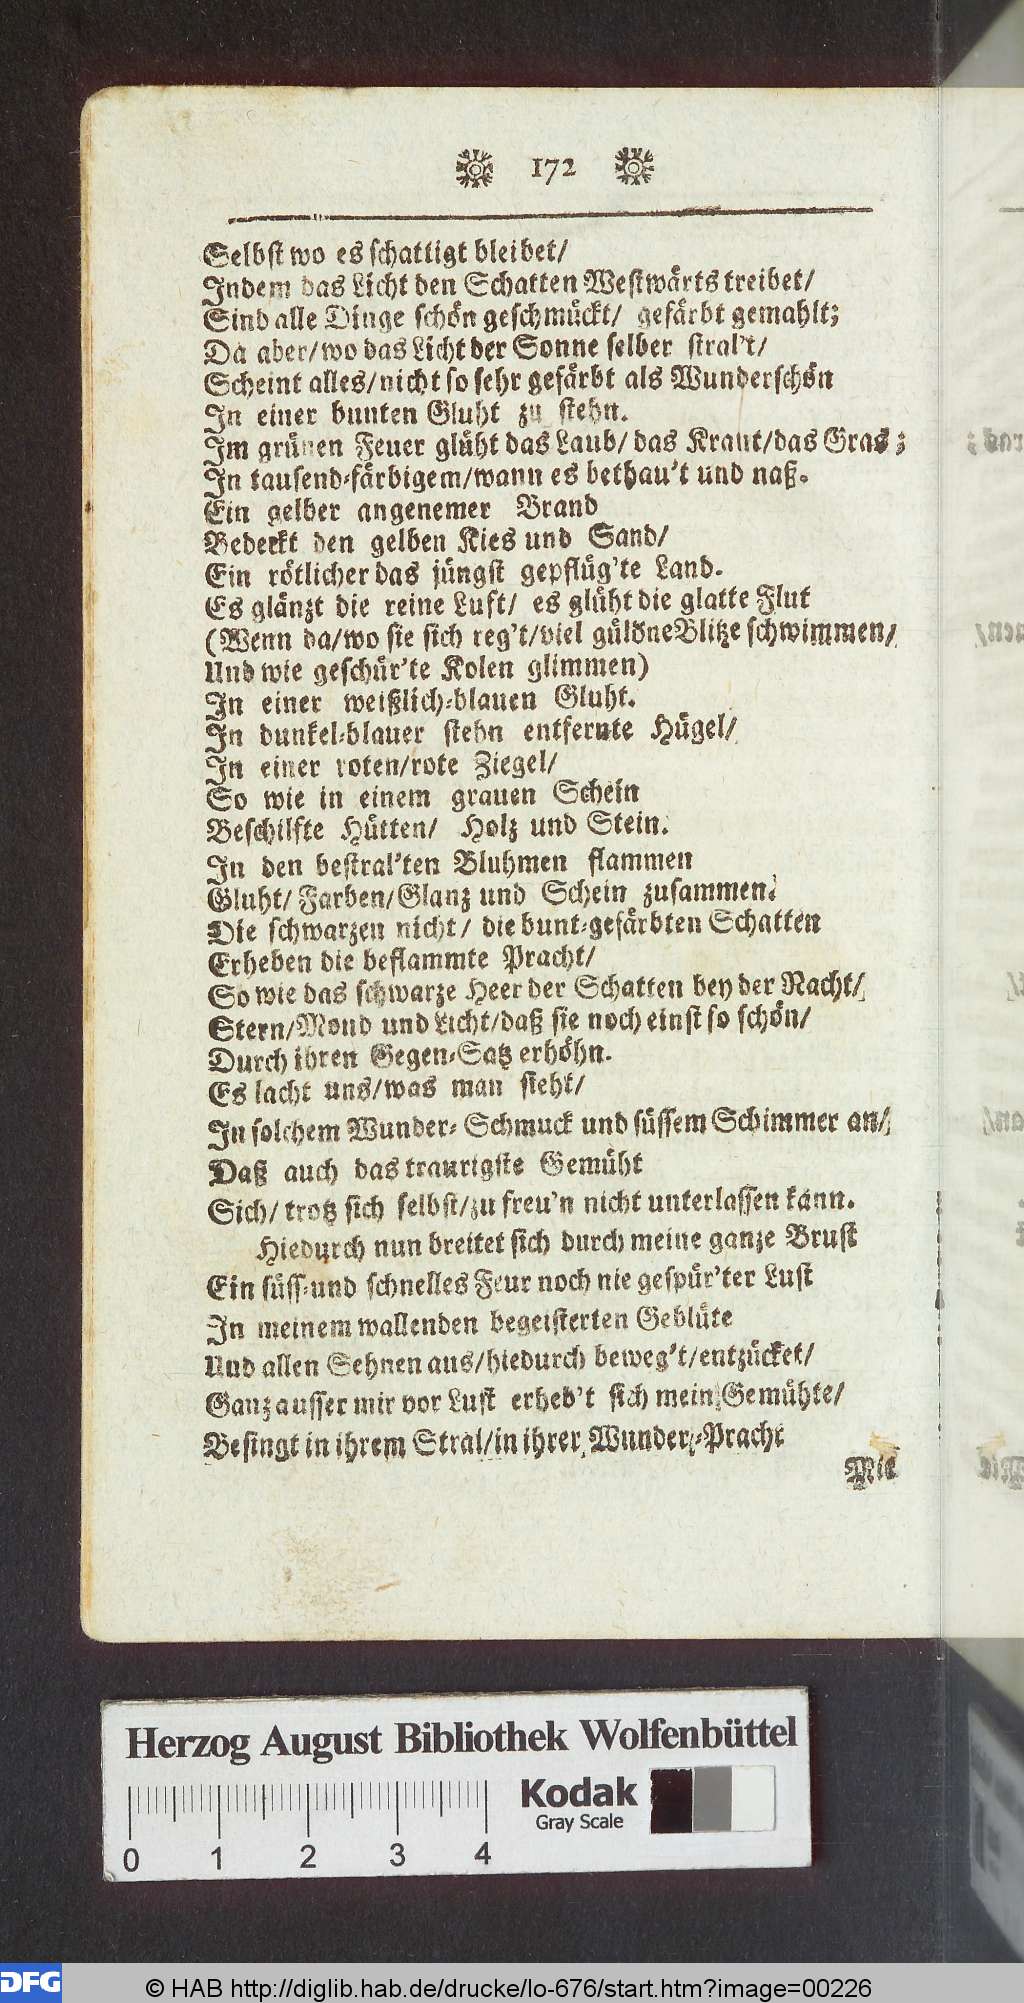 172
Selbst wo es schattigt bleibet/
Indem das Licht den Schatten Westwärts treibet/
Sind alle Dinge schön geschmückt/ gefärbt gemahlt;
Da aber/wo das Licht der Sonne selber stral't/
Scheint alles/nicht so sehr gefärbt als Wunderschön
In einer bunten Gluht zu stehn.
Im grünen Feuer glüht das Laub/das Kraut/das Gras;
In tausend-färbigem/wann es bethau't und naß.
Ein gelber angenemer Brand
Bedeckt den gelben Kies und Sand/
Ein rötlicher das jüngst gepflüg'te Land.
Es glänzt die reine Luft/ es glüht die glatte Flut
(Wenn da/wo sie sich reg't/viel güldne Blitze schwimmen/
Und wie geschür'te Kolen glimmen)
In einer weißlich-blauen Gluht.
In dunkel-blauer stehn entfernte Hügel/
In einer roten/rote Ziegel/
So wie in einem grauen Schein
Beschilfte Hütten/ Holz und Stein.
In den bestral'ten Bluhmen flammen
Gluht/Farben/Glanz und Schein zusammen.
Die schwarzen nicht/ die bunt-gefärbten Schatten
Erheben die beflammte Pracht/
So wie das schwarze Heer der Schatten bey der Nacht/
Stern/Mond und Licht/daß sie noch einst so schön/
Durch ihren Gegen-Satz erhöhn.
Es lacht uns/was man sieht/
In solchem Wunder-Schmuck und süssem Schimmer an/
Daß auch das traurigste Gemüht
Sich/ trotz sich selbst/zu freu'n nicht unterlassen kann.
Hiedurch nun breitet sich durch meine ganze Brust
Ein süss-und schnelles Feur noch nie gespür'ter Lust
In meinem wallenden begeisterten Geblüte
Und allen Sehnen aus/hiedurch beweg't/entzücket/
Ganz ausser mir vor Lust erheb't sich mein Gemühte/
Besingt in ihrem Stral/in ihrer Wunder-Pracht
Wie
Herzog August Bibliothek Wolfenbüttel
Kodak
Gray Scale
0 1 2 3 4
DFG © HAB http://diglib.hab.de/drucke/lo-676/start.htm?image=00226